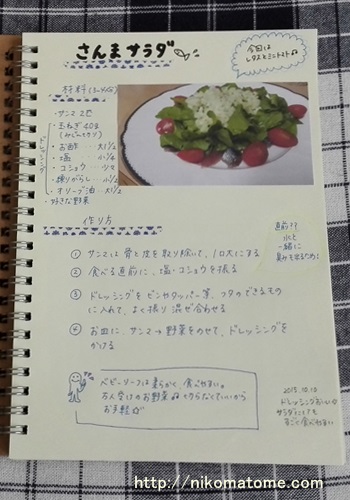 さんまサラダ
今回は
レタスとミニトマト
材料(3〜4人分)
・サンマ 2匹
・玉ねぎ 40g
(みじん切り)
・お酢 … 大1/2
・塩 … 小1/4
・コショウ … 少々
・練りがらし … 小1/2
・オリーブ油 … 大1/2
・好きな野菜
ドレッシング
作り方
① サンマは骨と皮を取り除いて、1口大にする
② 食べる直前に、塩・コショウを振る
③ ドレッシングをビンやタッパー等、フタのできるもの
に入れて、よく振り混ぜ合わせる
④ お皿に、サンマ→野菜をのせて、ドレッシングを
かける
直前まで
一緒に
ベビーリーフは柔らかく、食べやすい。
万人受けのお野菜 切らなくていいから
お手軽
2015.10.10
ドレッシングおいしい
サラダとしても
すごく食べやすい
http://nikomatome.com